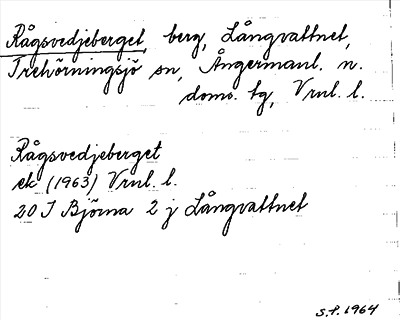 Rågsvedjeberget, berg, Långvattnet,
Trehörningsjö sn, Ångermanl. n.
doms. tg, Vrnl. l.
Rågsvedjeberget
ek (1963) Vrnl. l.
20 I Björna 2 j Långvattnet
S.F. 1964